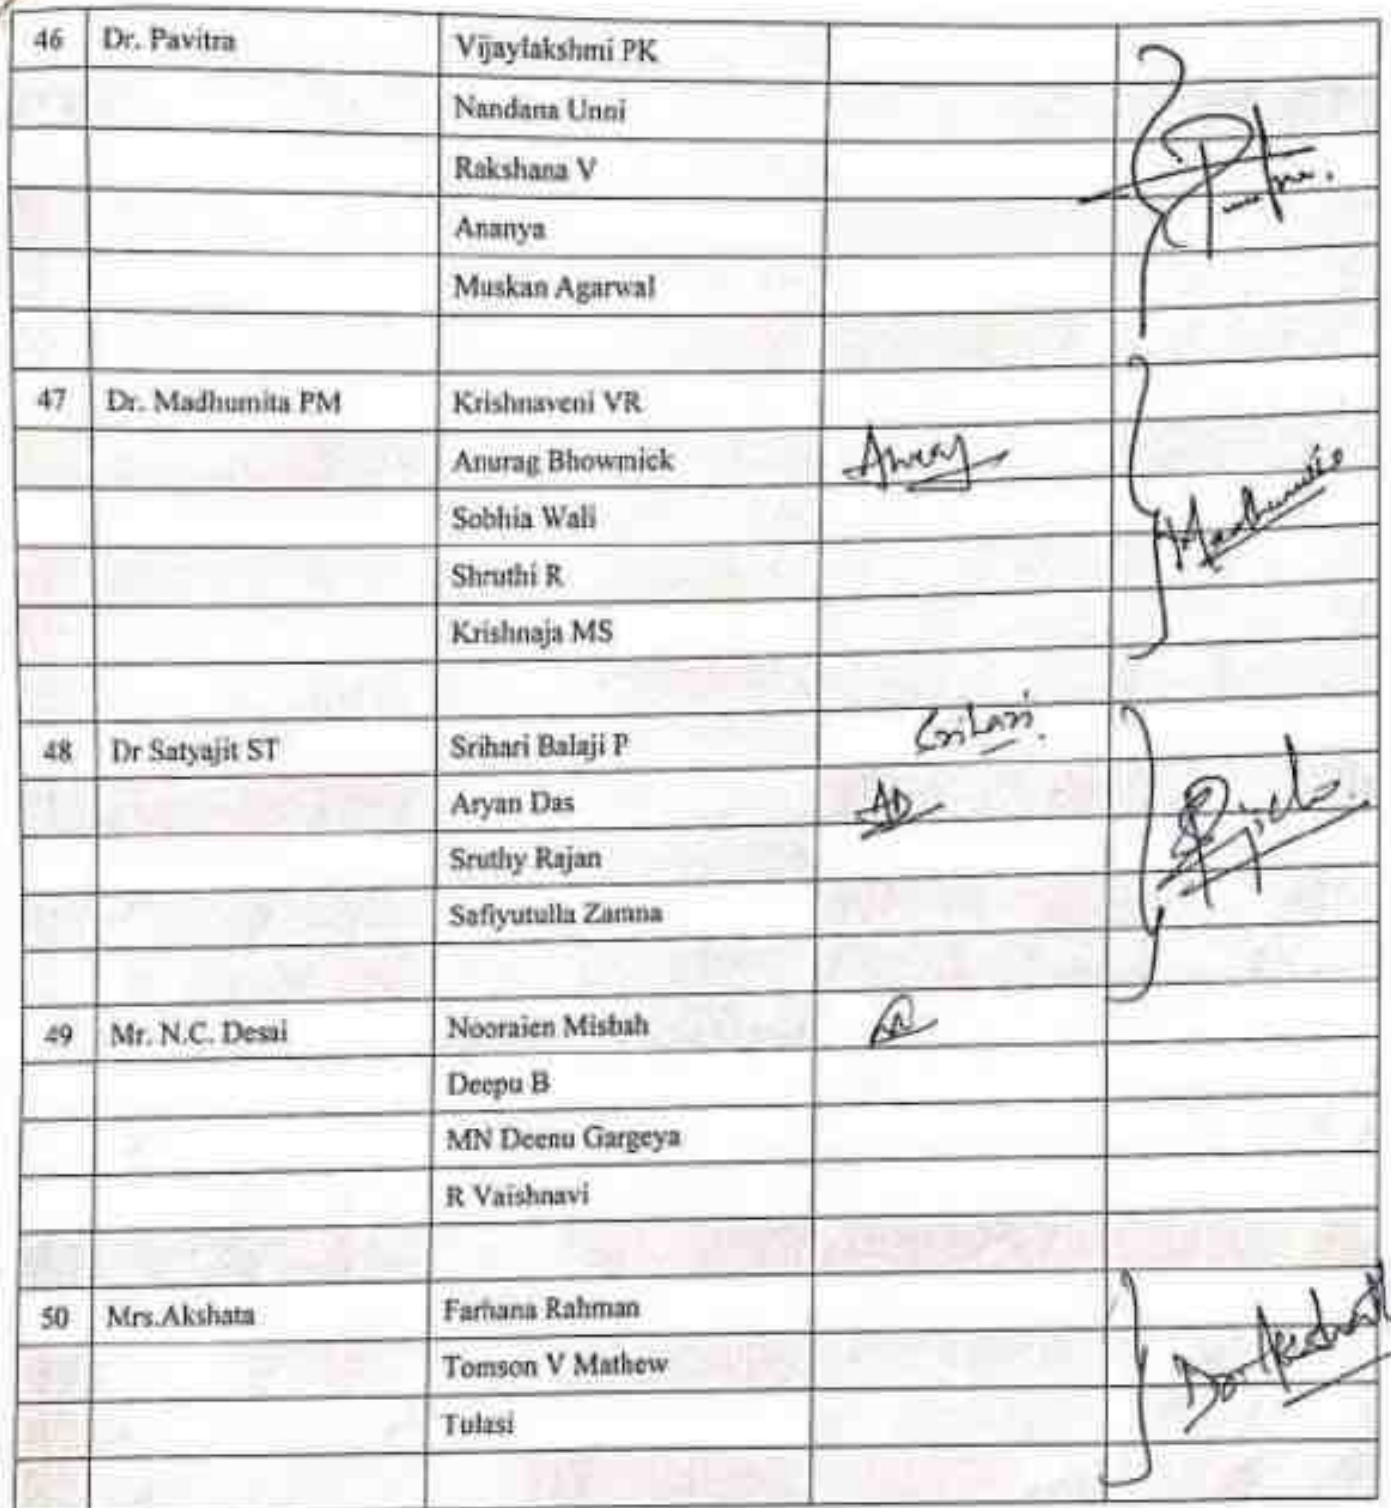 46 Dr. Pavitra Vijaylakshmi PK
Nandana Unni
Rakshana V
Ananya
Muskan Agarwal
47 Dr. Madhumita PM Krishnaveni VR
Anurag Bhowmick
Sobhia Wali
Shruthi R
Krishnaja MS
48 Dr Satyajit ST Srihari Balaji P Srihari.
Aryan Das AD
Sruthy Rajan
Safiyutulla Zamna
49 Mr. N.C. Desai Nooraien Misbah
Deepu B
MN Deenu Gargeya
R Vaishnavi
50 Mrs.Akshata Farhana Rahman
Tomson V Mathew
Tulasi